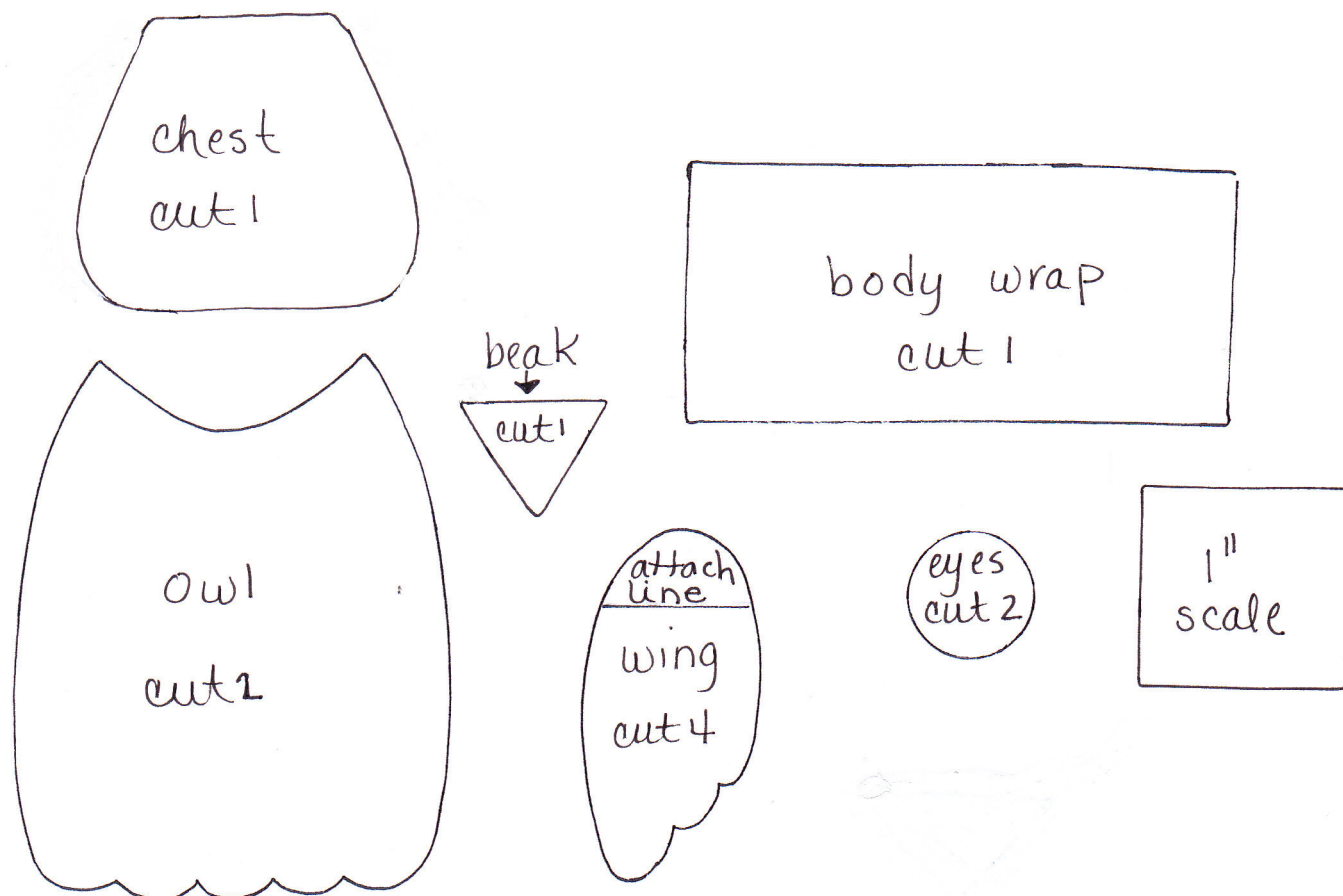 chest
cut 1
body wrap
cut 1
beak
cut 1
owl
cut 2
attach
line
wing
cut 4
eyes
cut 2
1"
scale